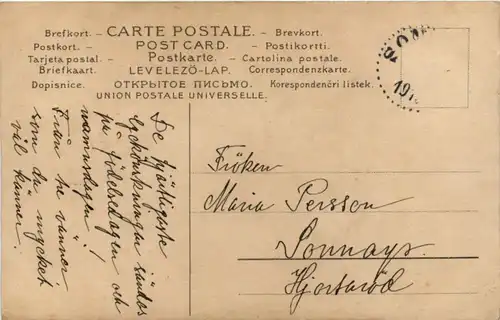 Brefkort. – CARTE POSTALE. – Brevkort.
Postkort. – POST CARD. – Postikortti.
Tarjeta postal. – Postkarte. – Cartolina postale.
Briefkaart. LEVELEZÖ-LAP. Correspondenzkarte.
Dopisnice. ОТКРЫТОЕ ПИСЬМО. Korespondenční listek.
UNION POSTALE UNIVERSELLE.
De hjärtligaste
lyckönskningar sändas
på födelsedagen och
namnsdagen!
Från tre vänner
som du mycket
väl känner.
Fröken
Maria Persson
Hjortaröd